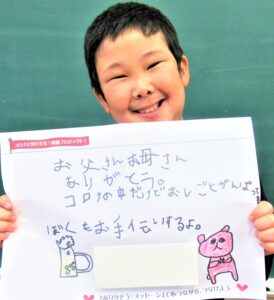 お父さんお母さん
ありがとう。
コロナの中だけどおしごとがんばって
ぼくもお手伝いするよ。